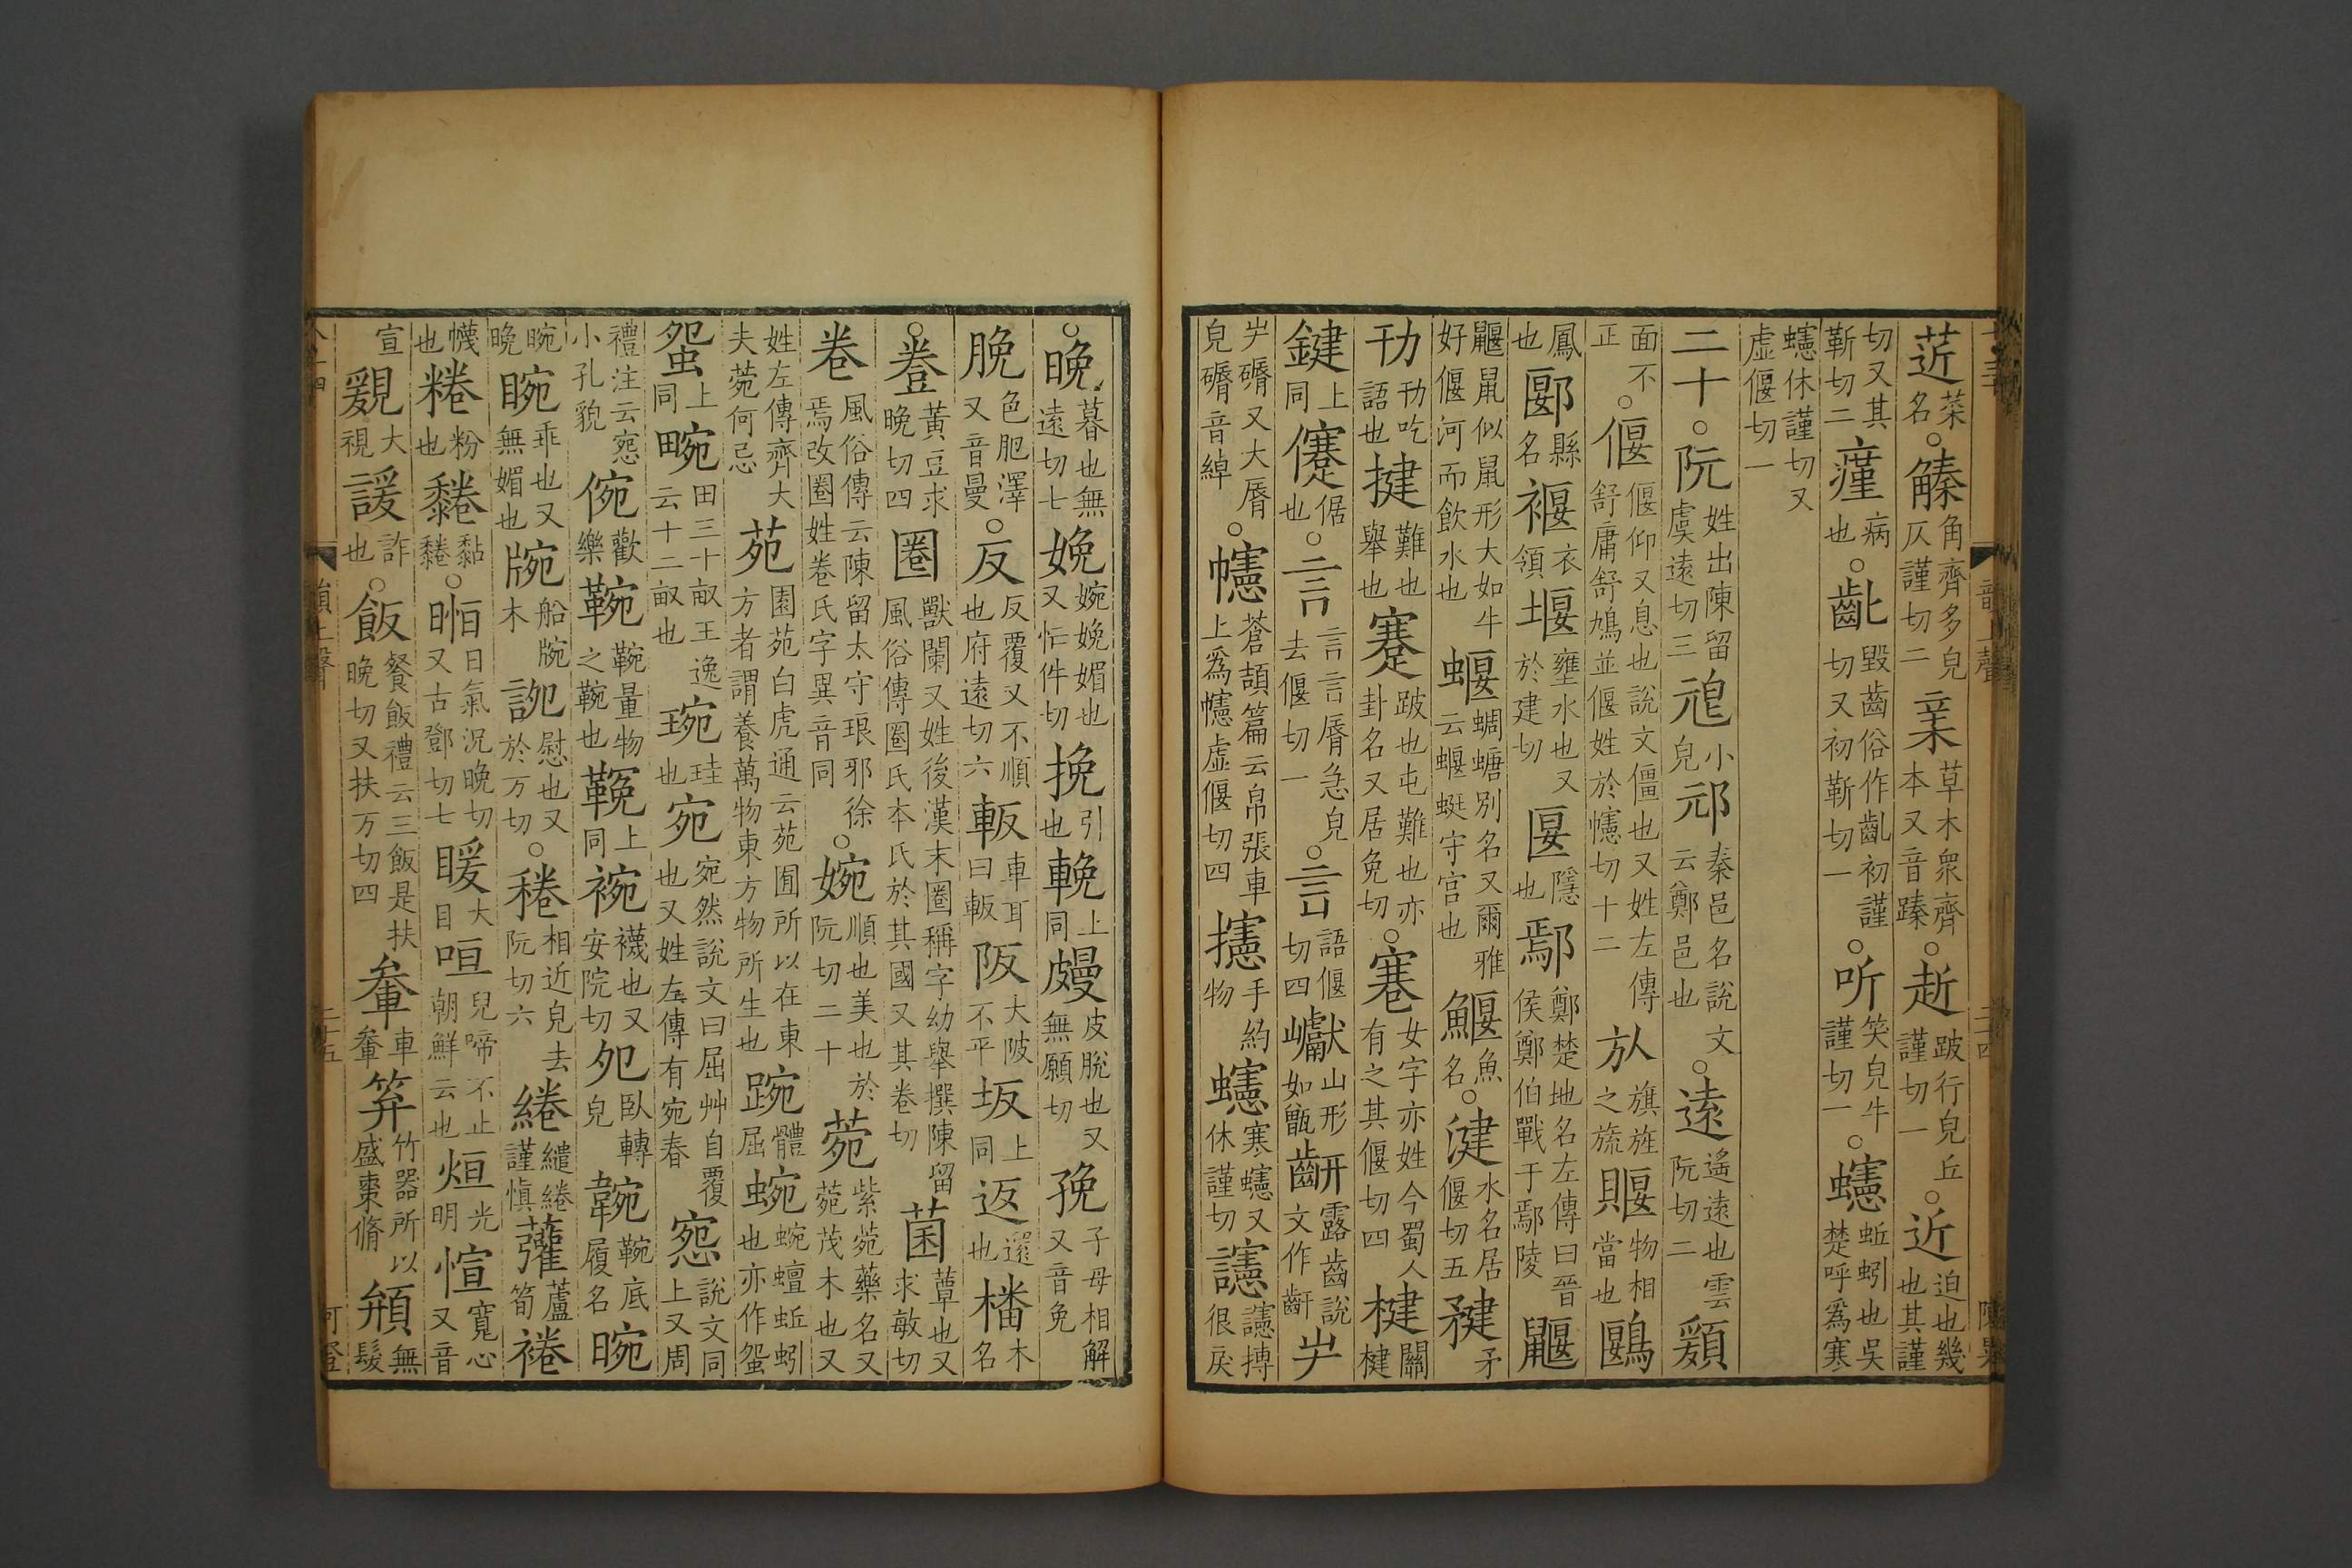 菦菜名○角齊多皃仄謹切二草木衆齊本又音蓁○赾跛行皃丘謹切一○近迫也幾也其謹
切又其靳切二瘽病也○齔毀齒俗作齓初謹切又初靳切一○听笑皃牛謹切一○蚯蚓也吳楚呼爲寒
休謹切又虛偃切一
二十○阮姓出陳留虞遠切三小皃邧秦邑名說文云鄭邑也○遠遥遠也雲阮切二顐
面不正○偃偃仰又息也說文僵也又姓左傳舒庸舒鳩並偃姓於幰切十二㫃旗旌之旒䞁物相當也鶠
鳳也郾縣名褗衣領堰壅水也又於建切匽隱也鄢鄭楚地名左傳曰晉侯鄭伯戰于鄢陵鼴
鼴鼠似鼠形大如牛好偃河而飲水也蝘蜩螗別名又爾雅云蝘蜓守宫也鰋魚名○湕水名居偃切五矛
刊吃語也揵難也舉也蹇跛也屯難也亦卦名又居免切○寋女字亦姓今蜀人有之其偃切四楗關楗
鍵上同倨也○言言脣急皃去偃切一○言語偃切四巘山形如甑齞露齒說文作齗屵
屵䃬又大脣皃䃬音綽○幰蒼頡篇云帛張車上爲幰虛偃切四攇手約物寒又休謹切很戾
○晚暮也無遠切七娩婉娩媚也又忙件切挽引也輓上同皮脫也又無願切㝃子母相解又音免
脕色肥澤又音曼○反反覆又不順也府遠切六軬車耳曰軬阪大陂不平坂上同返還也橎木名
○黃豆求晚切四圈獸闌又姓後漢末圈稱字幼舉撰陳留風俗傳圈氏本氏於其國又其卷切菌蕈也又求敏切
卷風俗傳云陳留太守琅邪徐焉改圈姓卷氏字異音同○婉順也美也於阮切二十菀紫菀藥名又菀茂木也又
姓左傳齊大夫菀何忌苑園苑白虎通云苑囿所以在東方者謂養萬物東方物所生也踠體屈蜿蜿蟺蚯蚓也亦作蛩
上同畹田三十畝王逸云十二畝也琬珪也宛宛然說文曰屈艸自覆也又姓左傳有宛春惌說文同上又周
禮注云惌小孔貌㑌歡樂鞔量物之也上同襪也又安院切夗臥轉皃底履名晼
晼晚䀩乖也又無媚也船木慰也又於万切○相近皃去阮切六綣繾綣謹慎蘆筍裷
幭也粣粉也黏○晅日氣况晚切又古鄧切七暖大目咺兒啼不止朝鮮云也烜光明愃寬心又音
宣大視諼詐也○飯餐飯禮云三飯是扶晚切又扶万切四車軬竹器所以盛棗脩無髮